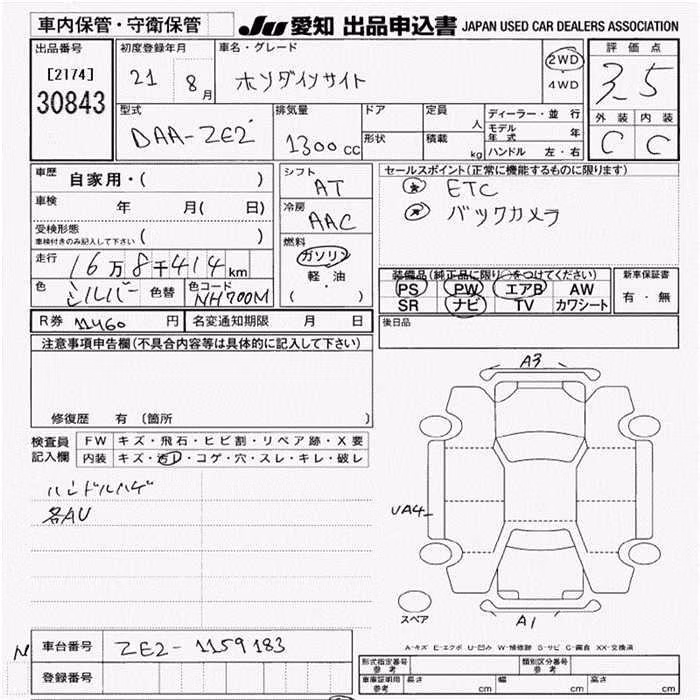 車内保管・守衛保管 JU 愛知 出品申込書 JAPAN USED CAR DEALERS ASSOCIATION
出品番号 初度登録年月 車名・グレード 評価点
[2174] 21 8月 ホンダインサイト 2WD 3.5
30843 4WD
外装 内装
型式 排気量 ドア 定員 人 ディーラー・並行
DAA-ZE2 1300cc 形状 積載 kg モデル年式 年 C C
ハンドル 左・右
車歴 自家用・( ) シフト AT セールスポイント(正常に機能するものに限ります)
ETC
車検 年 月( 日) 冷房 AAC バックカメラ
受検形態
車検付きのみ記入して下さい ( ) 燃料
走行 16万8千414km ガソリン
軽・油
( )
装備品(純正品に限り○をつけてください) 新車保証書
色 シルバー 色替 色コード NH700M PS PW エアB AW 有・無
SR ナビ TV カワシート
R券 11460円 名変通知期限 月 日 後日品
注意事項申告欄(不具合内容等は具体的に記入して下さい)
修復歴 有(箇所 )
検査員記入欄 FW キズ・飛石・ヒビ割・リペア跡・X要
内装 キズ・汚れ・コゲ・穴・スレ・キレ・破レ
ハンドルハゲ
各AU
A3
UA4
スペア
A1
A-キズ E-エクボ U-凹み W-補修跡 S-サビ C-腐食 XX-交換済
車台番号 ZE2-1159183
登録番号
形式指定番号 参考 類別区分番号 参考
車庫証明用 参考 長さ cm 幅 cm 高さ cm